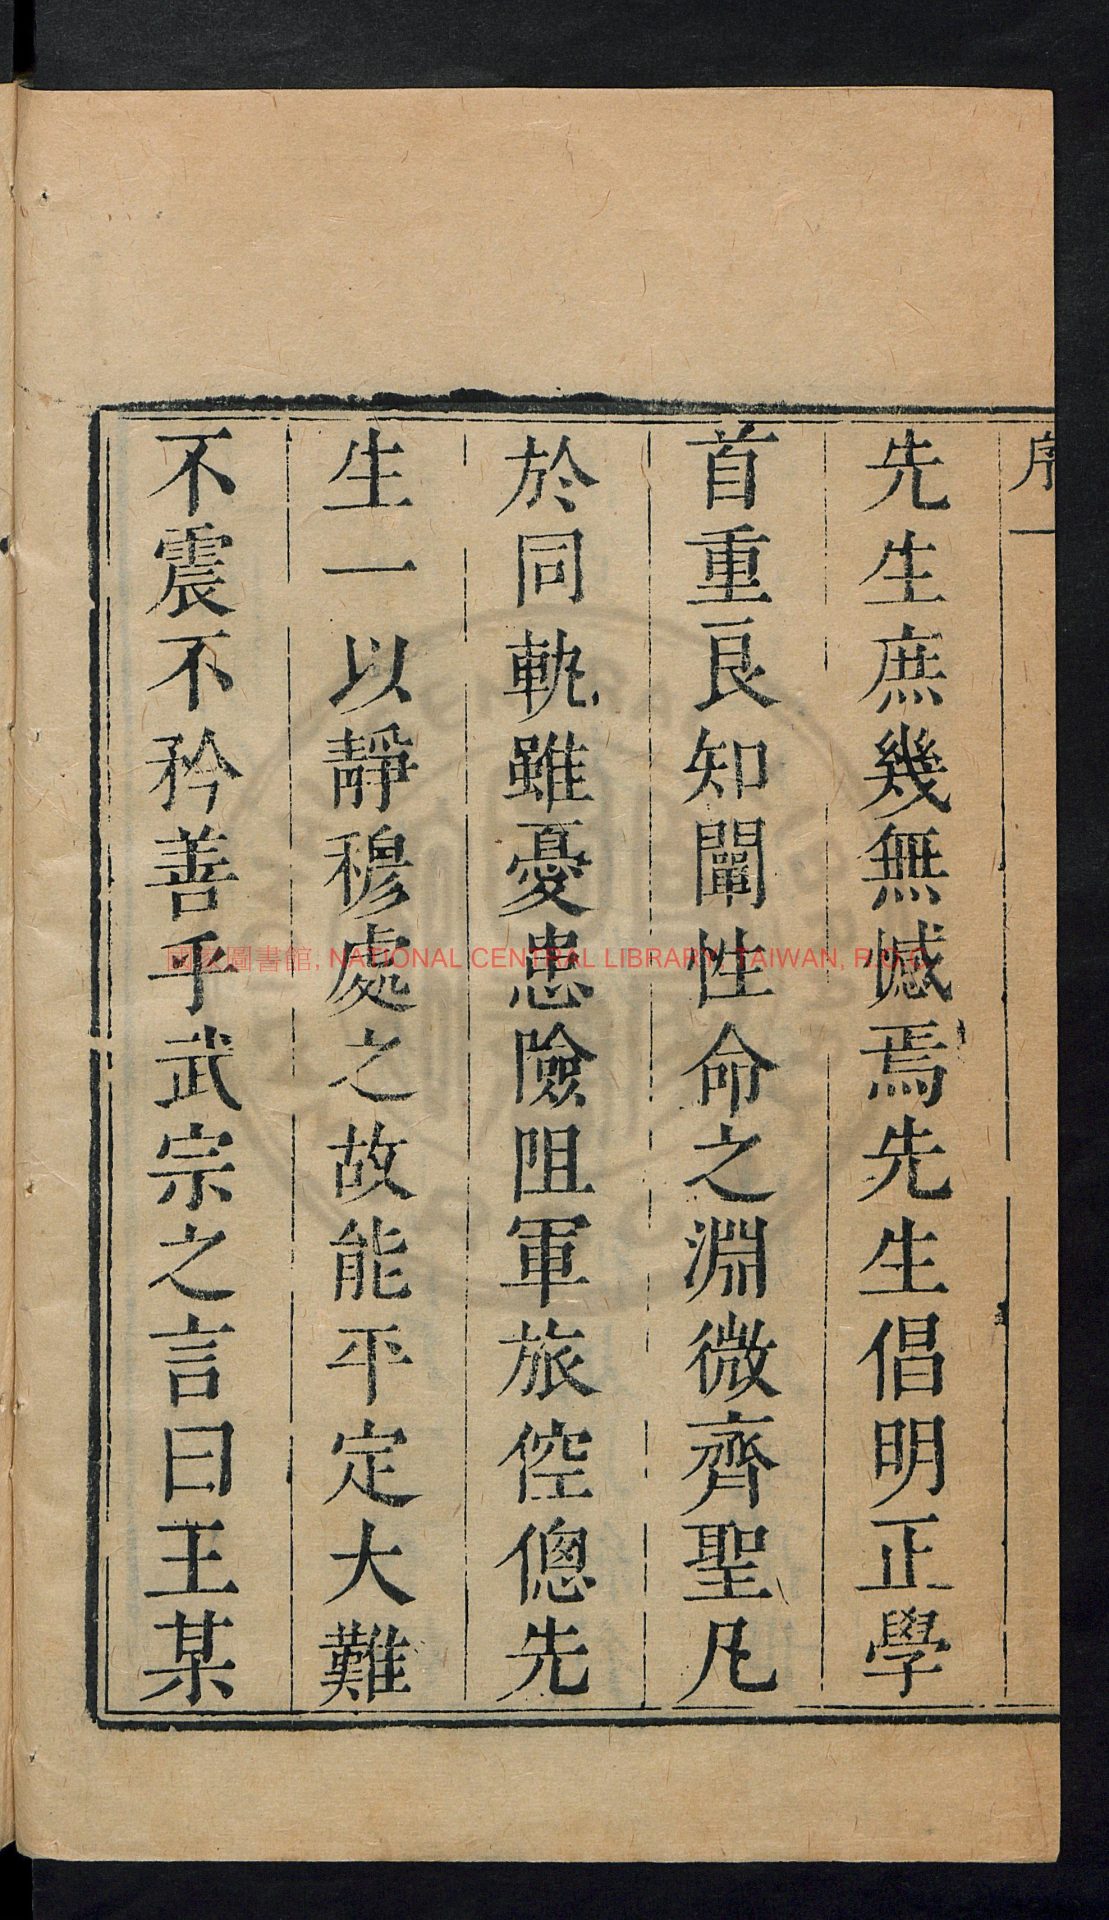 序一
先生庶幾無憾焉先生倡明正學
首重良知闡性命之淵微齊聖凡
於同軌雖憂患險阻軍旅倥傯先
生一以靜穆處之故能平定大難
不震不矜善乎武宗之言曰王某
國家圖書館, NATIONAL CENTRAL LIBRARY, TAIWAN, R.O.C.